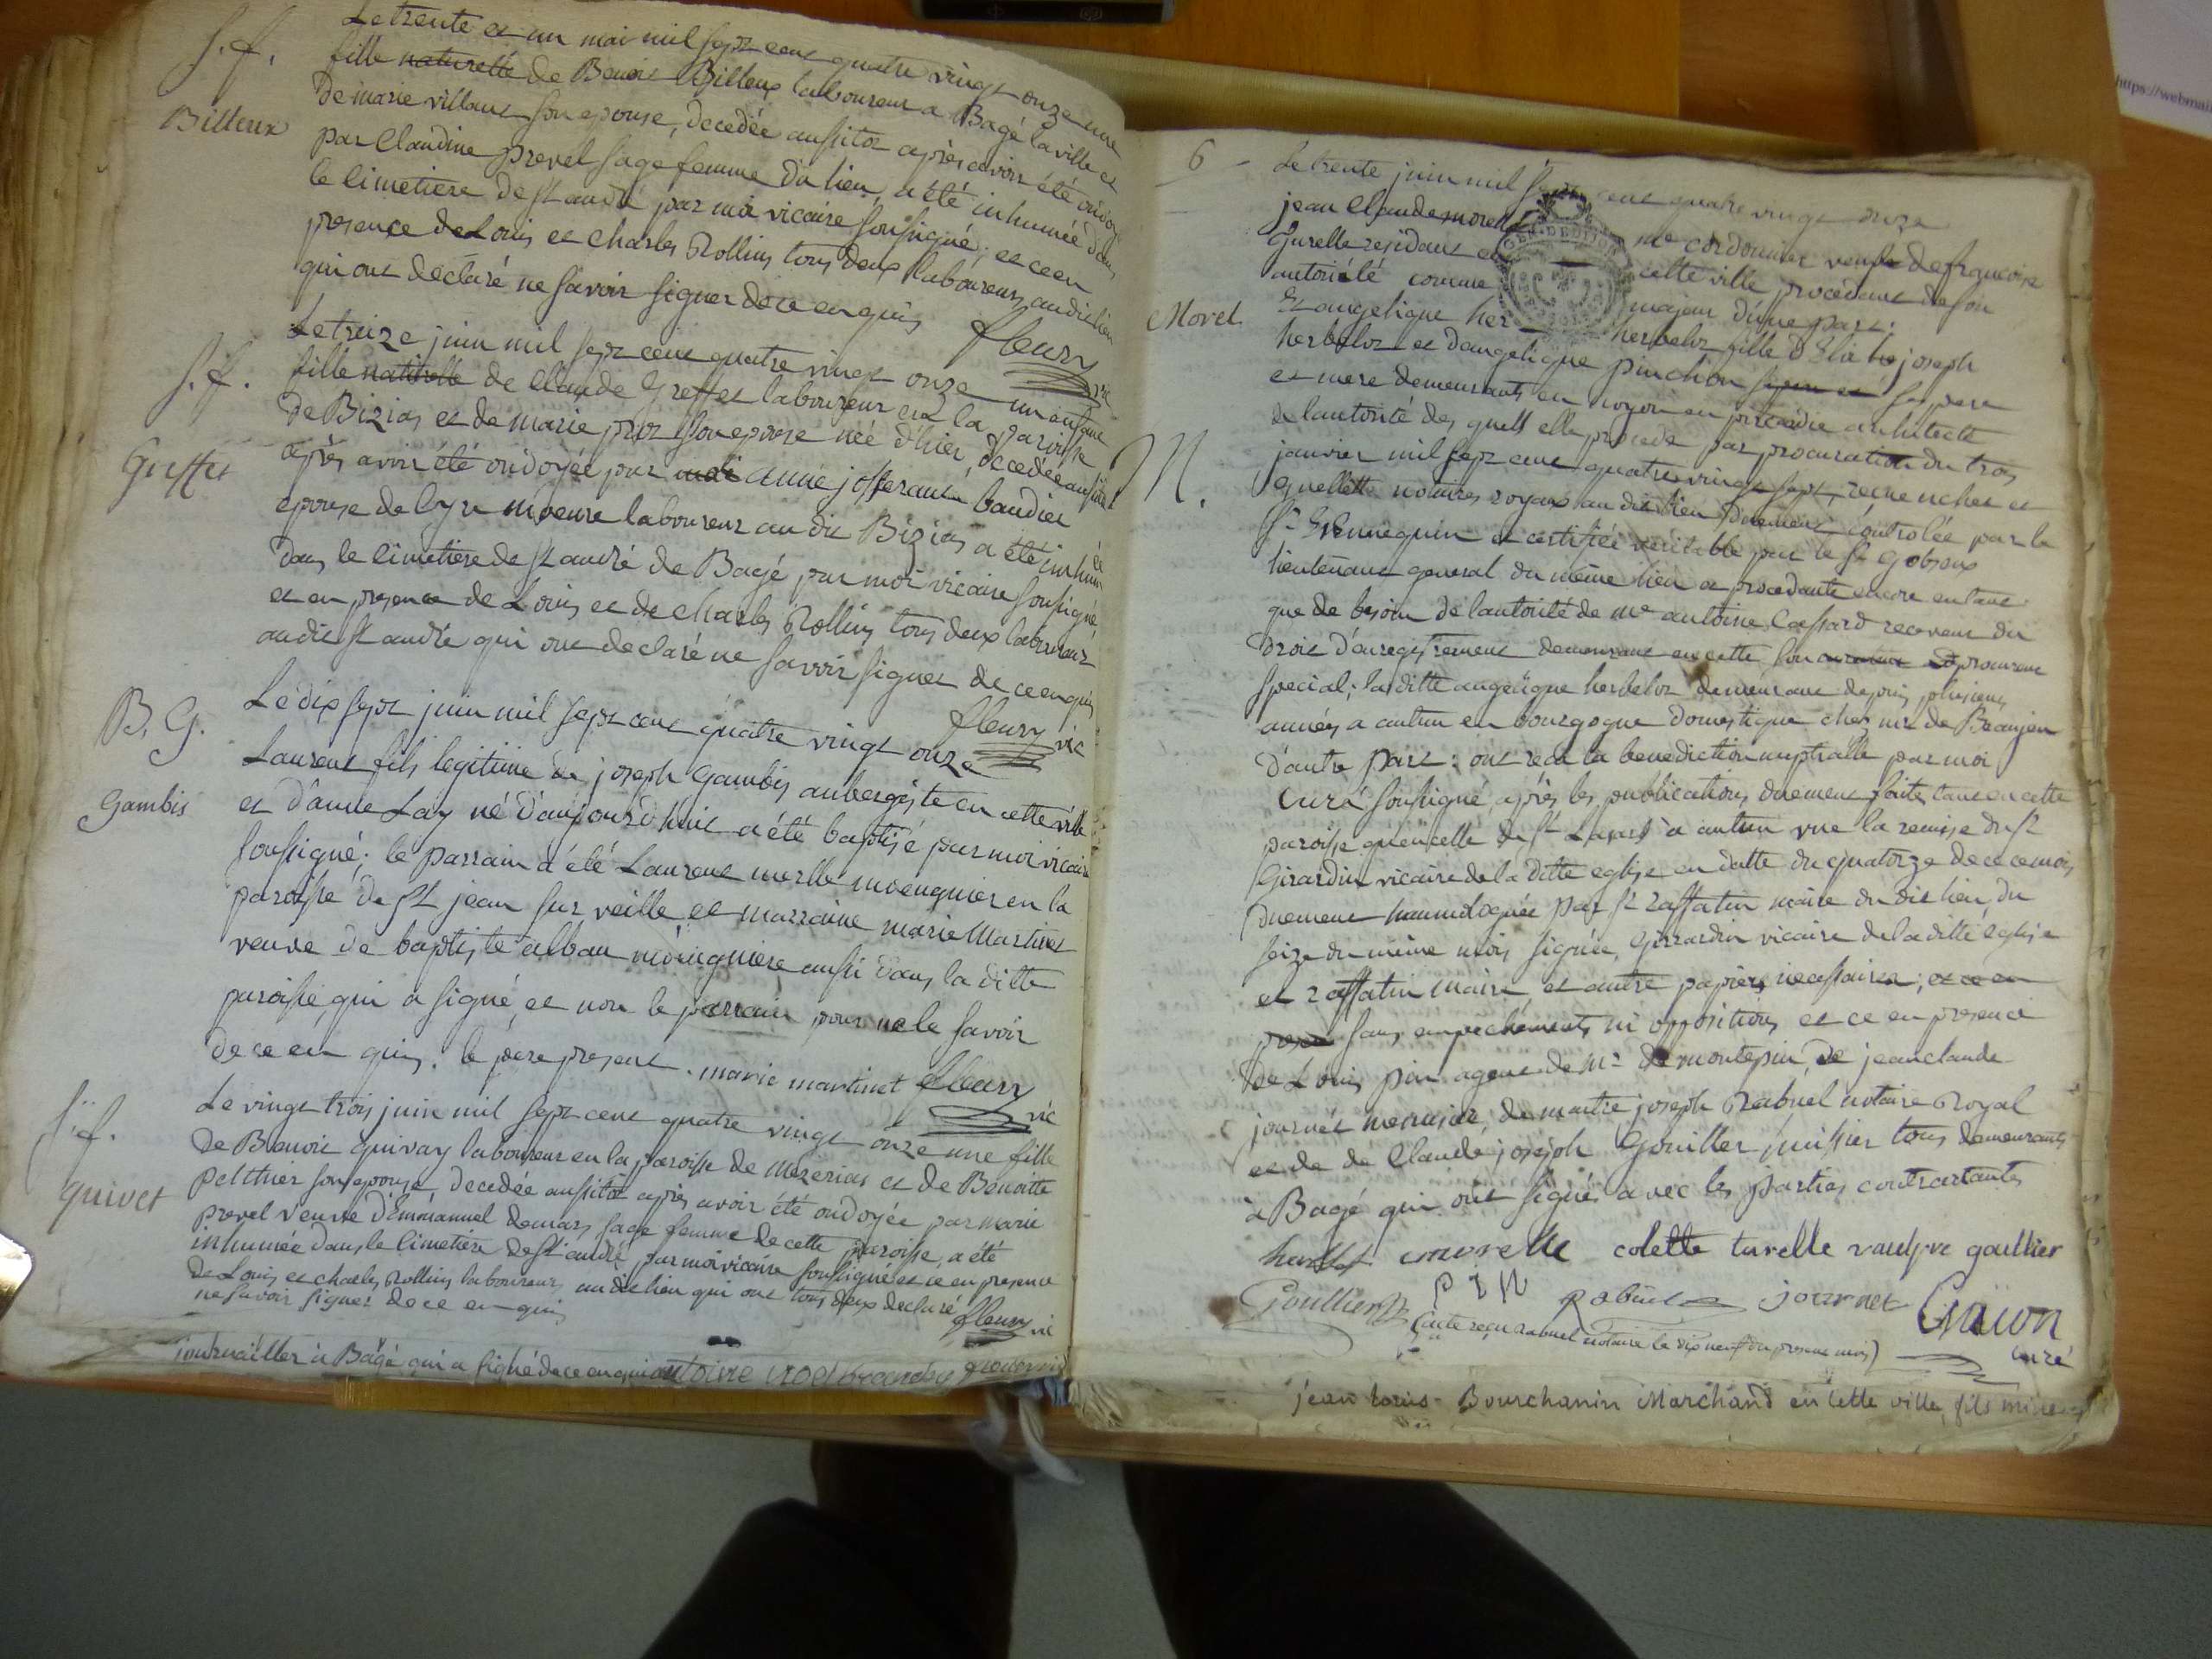 S. f.
Billeux
Le trente et un mai mil sept cent quatre vingt onze une
fille naturelle de Benoit Billoux laboureur a Bagé la ville et
de marie villant son epouse, decedée aussitot après avoir été ondoyé
par Claudine prevel sage femme du lieu, a été inhumée dans
le cimetiere de st andré par moi vicaire soussigné; et ce en
presence de Louis et charles Rollins tous deux laboureurs audit lieu
qui ont declaré ne savoir signer de ce enquis
fleury vic
S. f.
Greffet
Le treize juin mil sept cent quatre vingt onze un enfant
fille naturelle de Claude Greffet laboureur en la paroisse
de Bizias et de marie son epouse née d'hier, decedée aussitot
après avoir été ondoyée par moi anne josserant baudier
epouse de laboureur au dit Bizias a été inhumée
dans le cimetiere de st andré de Bagé par moi vicaire soussigné
et en presence de Louis et de charles Rollins tous deux laboureurs
audit st andré qui ont declaré ne savoir signer de ce enquis
fleury vic
B. G.
Gambis
Le dix sept juin mil sept cent quatre vingt onze
Laurent fils legitime de joseph Gambis aubergiste en cette ville
et d'anne Lay né d'aujourd'huit a été baptisé par moi vicaire
soussigné; le parrain a été Laurent merlle meugnier en la
paroisse de st jean sur veille et marraine marie Martinet
veuve de baptiste alban meugniere aussi dans la ditte
paroisse, qui a signé, et non le parrain pour ne le savoir
de ce enquis. le pere present. marie martinet fleury
vic
S. f.
quivet
Le vingt trois juin mil sept cent quatre vingt onze une fille
de Benoit quivay laboureur en la paroisse de mezerias et de Benoitte
pelthier son epouse decedée aussitot après avoir été ondoyée par marie
prevel veuve d'Emmanuel demars sage femme de cette paroisse, a été
inhumée dans le cimetiere de st andré par moi vicaire soussigné et ce en presence
de Louis et charles Rollins laboureurs au dit lieu qui ont tous deux declaré
ne savoir signer de ce enquis
fleury vic
journallier à Bâgé qui a signé de ce enquis antoine
6
Morel
M.
Le trente juin mil sept cent quatre vingt onze
jean Claude morel me cordonnier veuf de francoise
Gurelle residant en cette ville procedant de son
autorité comme majeur d'une part;
Et angelique her herbelot fille d'Elie joseph
herbelot et d'angelique pinchon ses pere
et mere demeurants en noyon en picardie architecte
de lautorité des quels elle procede par procuration du trois
janvier mil sept cent quatre vingt sept, recue uchet et
guellette notaires royaux au dit lieu duement controlée par le
sr hennequin et certifiée veritable par le sr gobeaux
lieutenant general du même lieu et procedante encore en tant
que de besoin de lautorité de me antoine Cassard receveur du
droit d'enregistrement demeurant en cette son curateur et procureur
special; laditte angelique herbelot demeurant depuis plusieurs
années a autun en bourgogne domestique chez mr de Beaujeu
d'autre part: ont recu la benediction nuptialle par moi
Curé soussigné, après les publications duement faites tant en cette
paroisse qu'en celle de st Lazard à autun vue la remise du sr
Girardin vicaire de la ditte eglise en datte du quatorze de ce mois,
duement homologuée par sr raffatin maire du dit lieu du
seize du même mois signée, Girardin vicaire de la ditte eglise
et raffatin maire, et autre papiers necessaires; et ce en
presen sans empechements ni oppositions et ce en presence
de Louis pin agent de Mr de montepin, de jean claude
journet menuisier, de maitre joseph Rabuel notaire Royal
et de de Claude joseph Gouiller huissier tous demeurants
à Bagé qui ont signé avec les parties contractantes
morelle colette turelle gaultier
Goulliers PIN Rabuel journet Guiwon
curé
(acte recu rabuel notaire le dix neuf du present mois)
jean Louis Bourchanin Marchand en cette ville, fils mineur
https://webmail